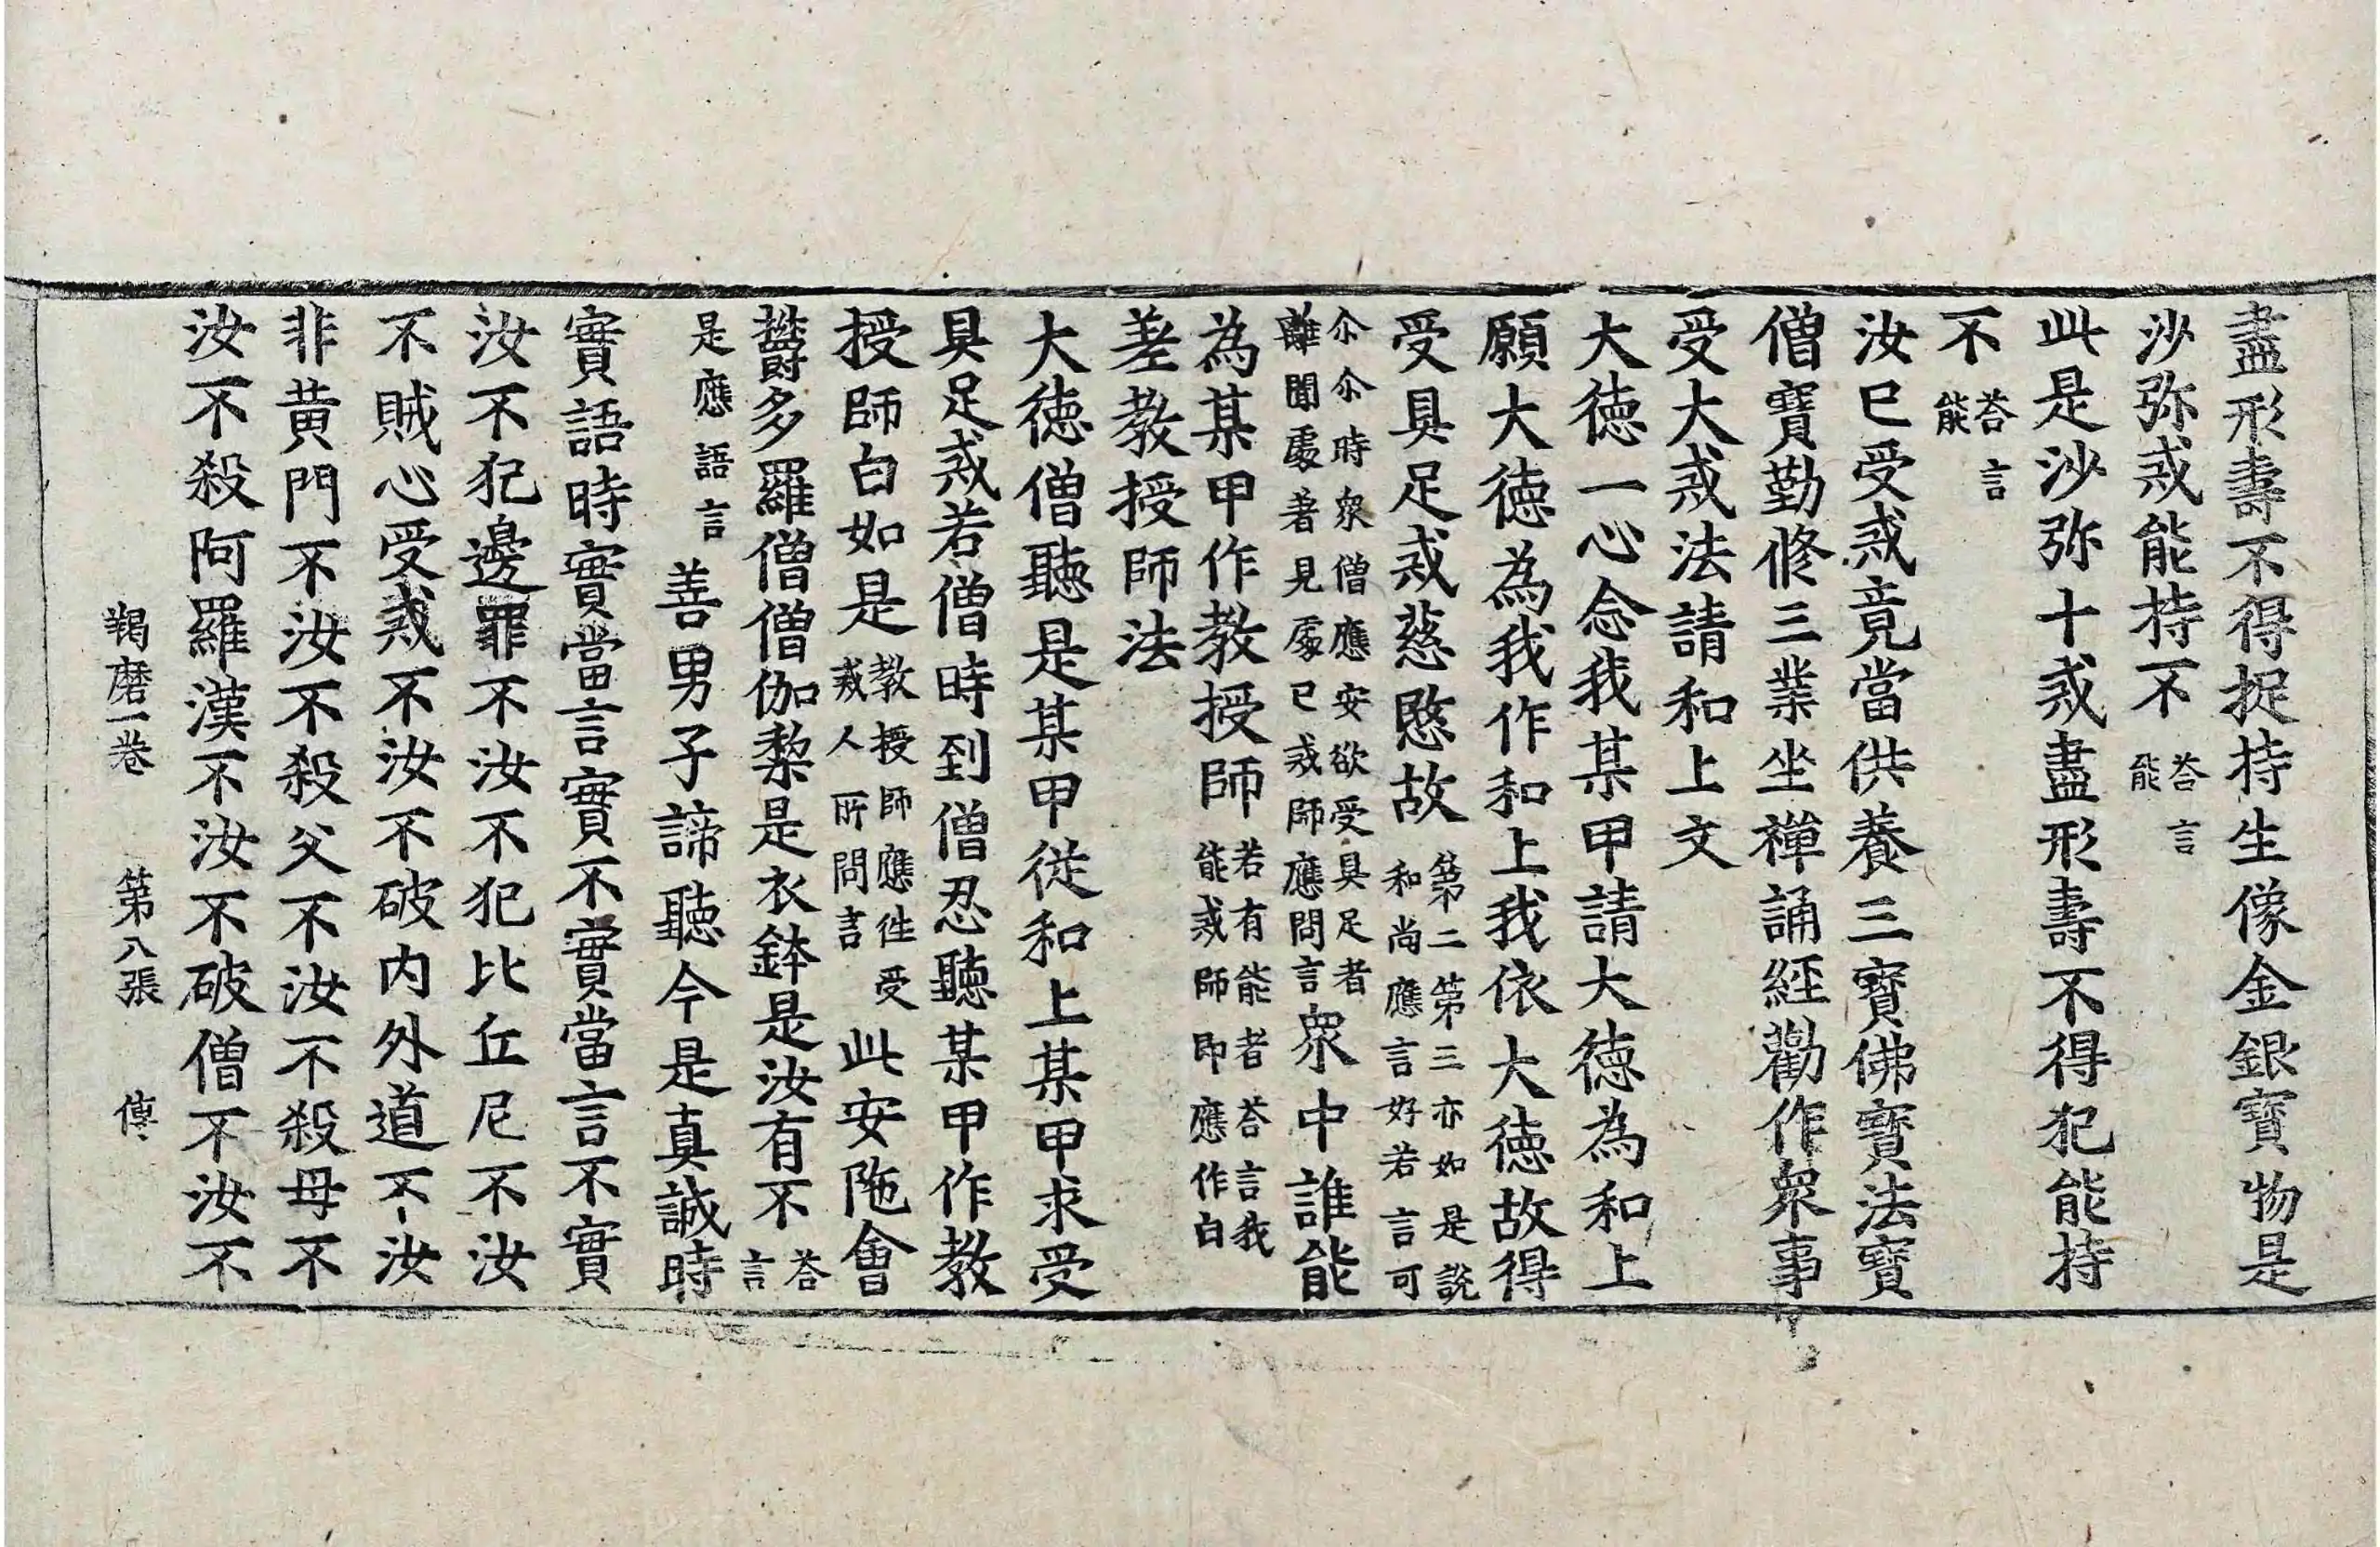 盡形壽不得捉持生像金銀寶物是
沙弥戒能持不荅言能
此是沙弥十戒盡形壽不得犯能持
不荅言能
汝已受戒竟當供養三寶佛寶法寶
僧寶勤修三業坐禪誦經勸作衆事
受大戒法請和上文
大德一心念我某甲請大德為和上
願大德為我作和上我依大德故得
受具足戒慈愍故第二第三亦如是說和尚應言好若言可
尒尒時衆僧應安欲受具足者離聞處著見處已戒師應問言衆中誰能
為某甲作教授師若有能者荅言我能戒師即應作白
差教授師法
大德僧聽是某甲從和上某甲求受
具足戒若僧時到僧忍聽某甲作教
授師白如是教授師應往受戒人所問言此安陁會
欝多羅僧僧伽黎是衣鉢是汝有不荅言
是應語言善男子諦聽今是真誠時
實語時實當言實不實當言不實
汝不犯邊罪不汝不犯比丘尼不汝
不賊心受戒不汝不破内外道不汝
非黃門不汝不殺父不汝不殺母不
汝不殺阿羅漢不汝不破僧不汝不
羯磨一卷　第八張　傳